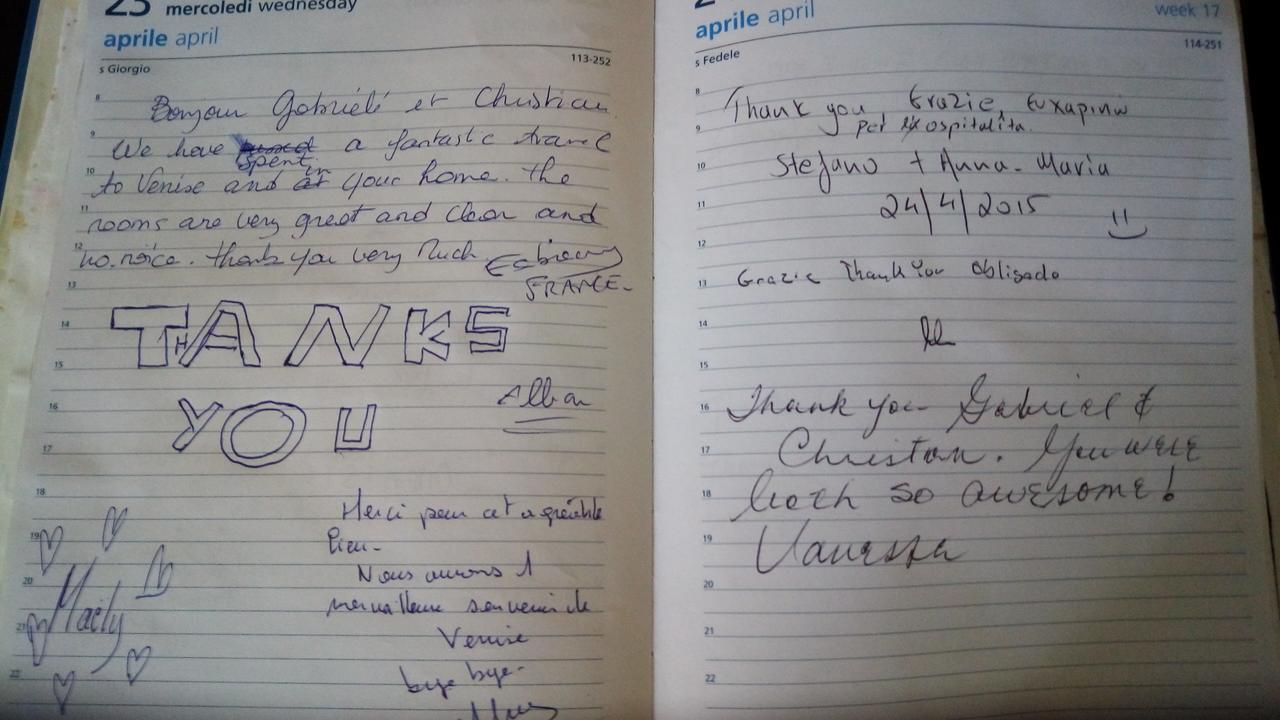 23 mercoledì wednesday
aprile april
s Giorgio
113-252
8
9
10
11
12
13
14
15
16
17
18
19
20
21
22
Bonjour Gabriélé et Christian
We have spent a fantastic travel
to Venise and in your home. the
rooms are very great and clean and
no noice. thank you very Much
FRANCE-
THANKS
YOU
Alban
Maëly
Merci pour cet agréable
lieu-
Nous aurons 1
merveilleux souvenir de
Venise
bye bye-
aprile april
week 17
s Fedele
114-251
8
9
10
11
12
13
14
15
16
17
18
19
20
21
22
Thank you Grazie, Ευχαριστώ
per ospitalita.
Stefano + Anna-Maria
24/4/2015
Grazie Thank You Obligado
Thank you Gabriel &
Christan. You were
both so awesome!
Vanessa